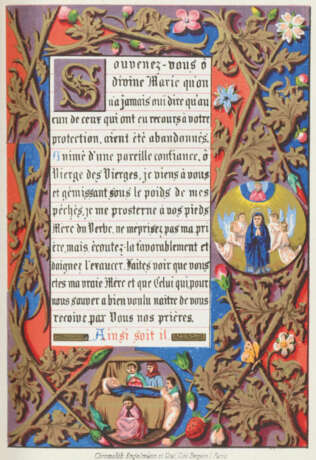 Souvenez-vous ô
divine Marie qu'on
n'a jamais oui dire qu'au
cun de ceux qui ont eu recours à votre
protection, aient été abandonnés.
Animé d'une pareille confiance, ô
Vierge des Vierges, je viens à vous
et gémissant sous le poids de mes
péchés, je me prosterne à vos pieds
Mere du Verbe, ne meprisez pas ma pri
ère, mais écoutez-la favorablement et
daignez l'exaucer. Faites voir que vous
êtes ma vraie Mere et que Celui qui, pour
nous sauver a bien voulu naitre de vous
reçoive par Vous nos prières.
Ainsi soit il
Chromolith. Engelmann et Graf, Cité Bergère 1 Paris